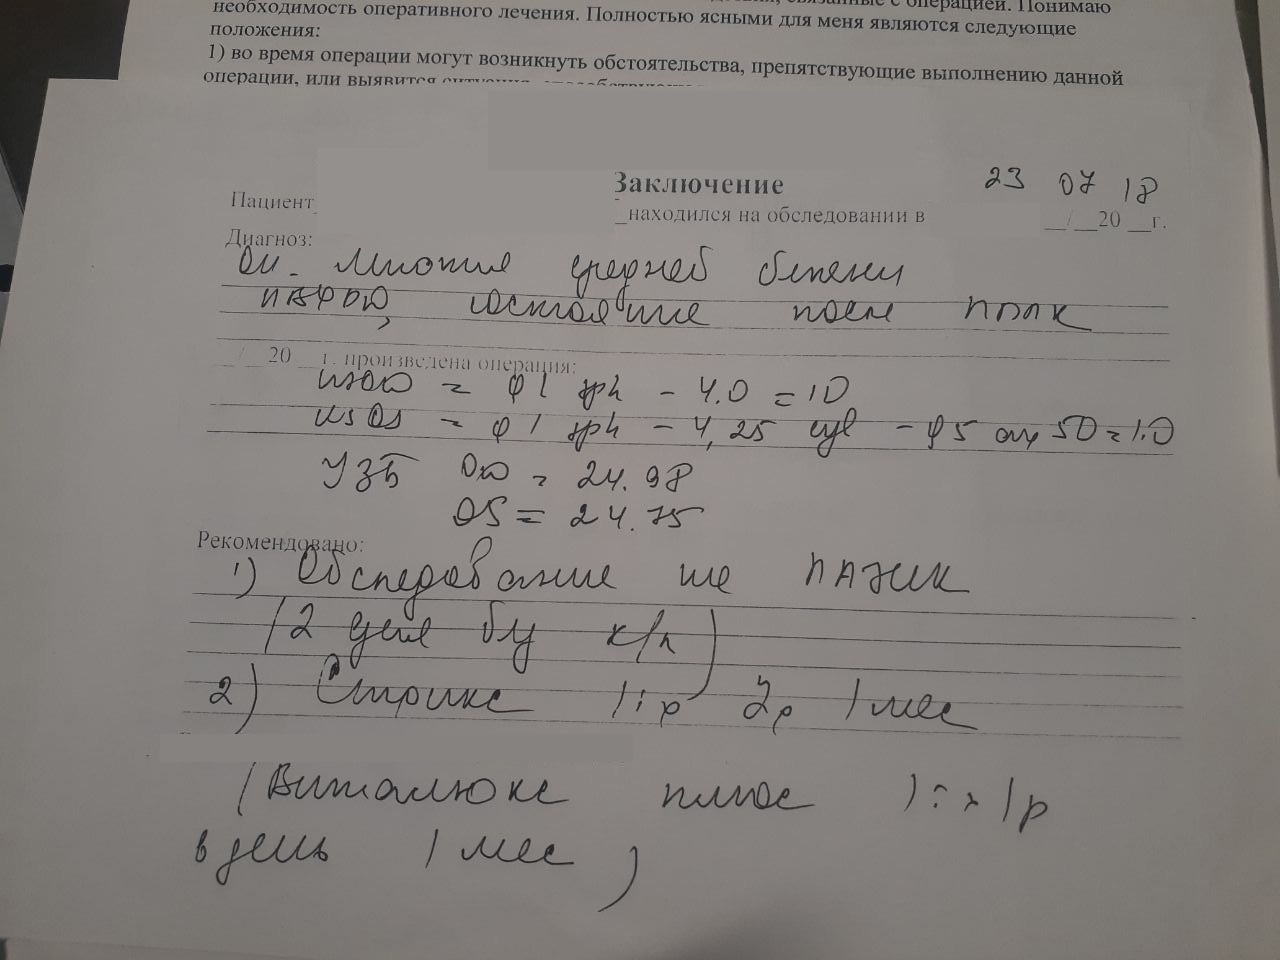 необходимость оперативного лечения. Полностью ясными для меня являются следующие
положения:
1) во время операции могут возникнуть обстоятельства, препятствующие выполнению данной
операции, или выявится
Заключение
23 07 18
Пациент
_находился на обследовании в __/__20 __г.
Диагноз:
OU. Миопия средней степени
ПВХРД, состояние после ППЛК
__/__20 __г. произведена операция:
VisOD = 0,1 sph - 4.0 = 1.0
VisOS = 0,1 sph - 4,25 cyl - 0,5 ax 50 = 1.0
УЗБ OD = 24.98
OS = 24.75
Рекомендовано:
1) Обследование на ЛАЗИК
(2 дня без к/л)
2) Стрикс 1т. 2р 1 мес
(Виталюкс плюс 1т. х 1р
в день 1 мес)